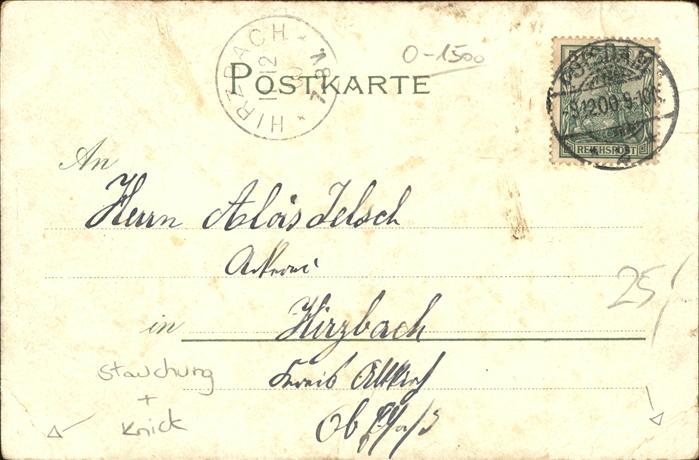 HIRZBACH
12
7-8N
0-1500
POSTKARTE
POTSDAM
12.00.9-10
REICHSPOST
An
Herrn Alois Jelsch
in Hirzbach
25
Kreis Altkirch
Ob Els
Stauchung
+
Knick